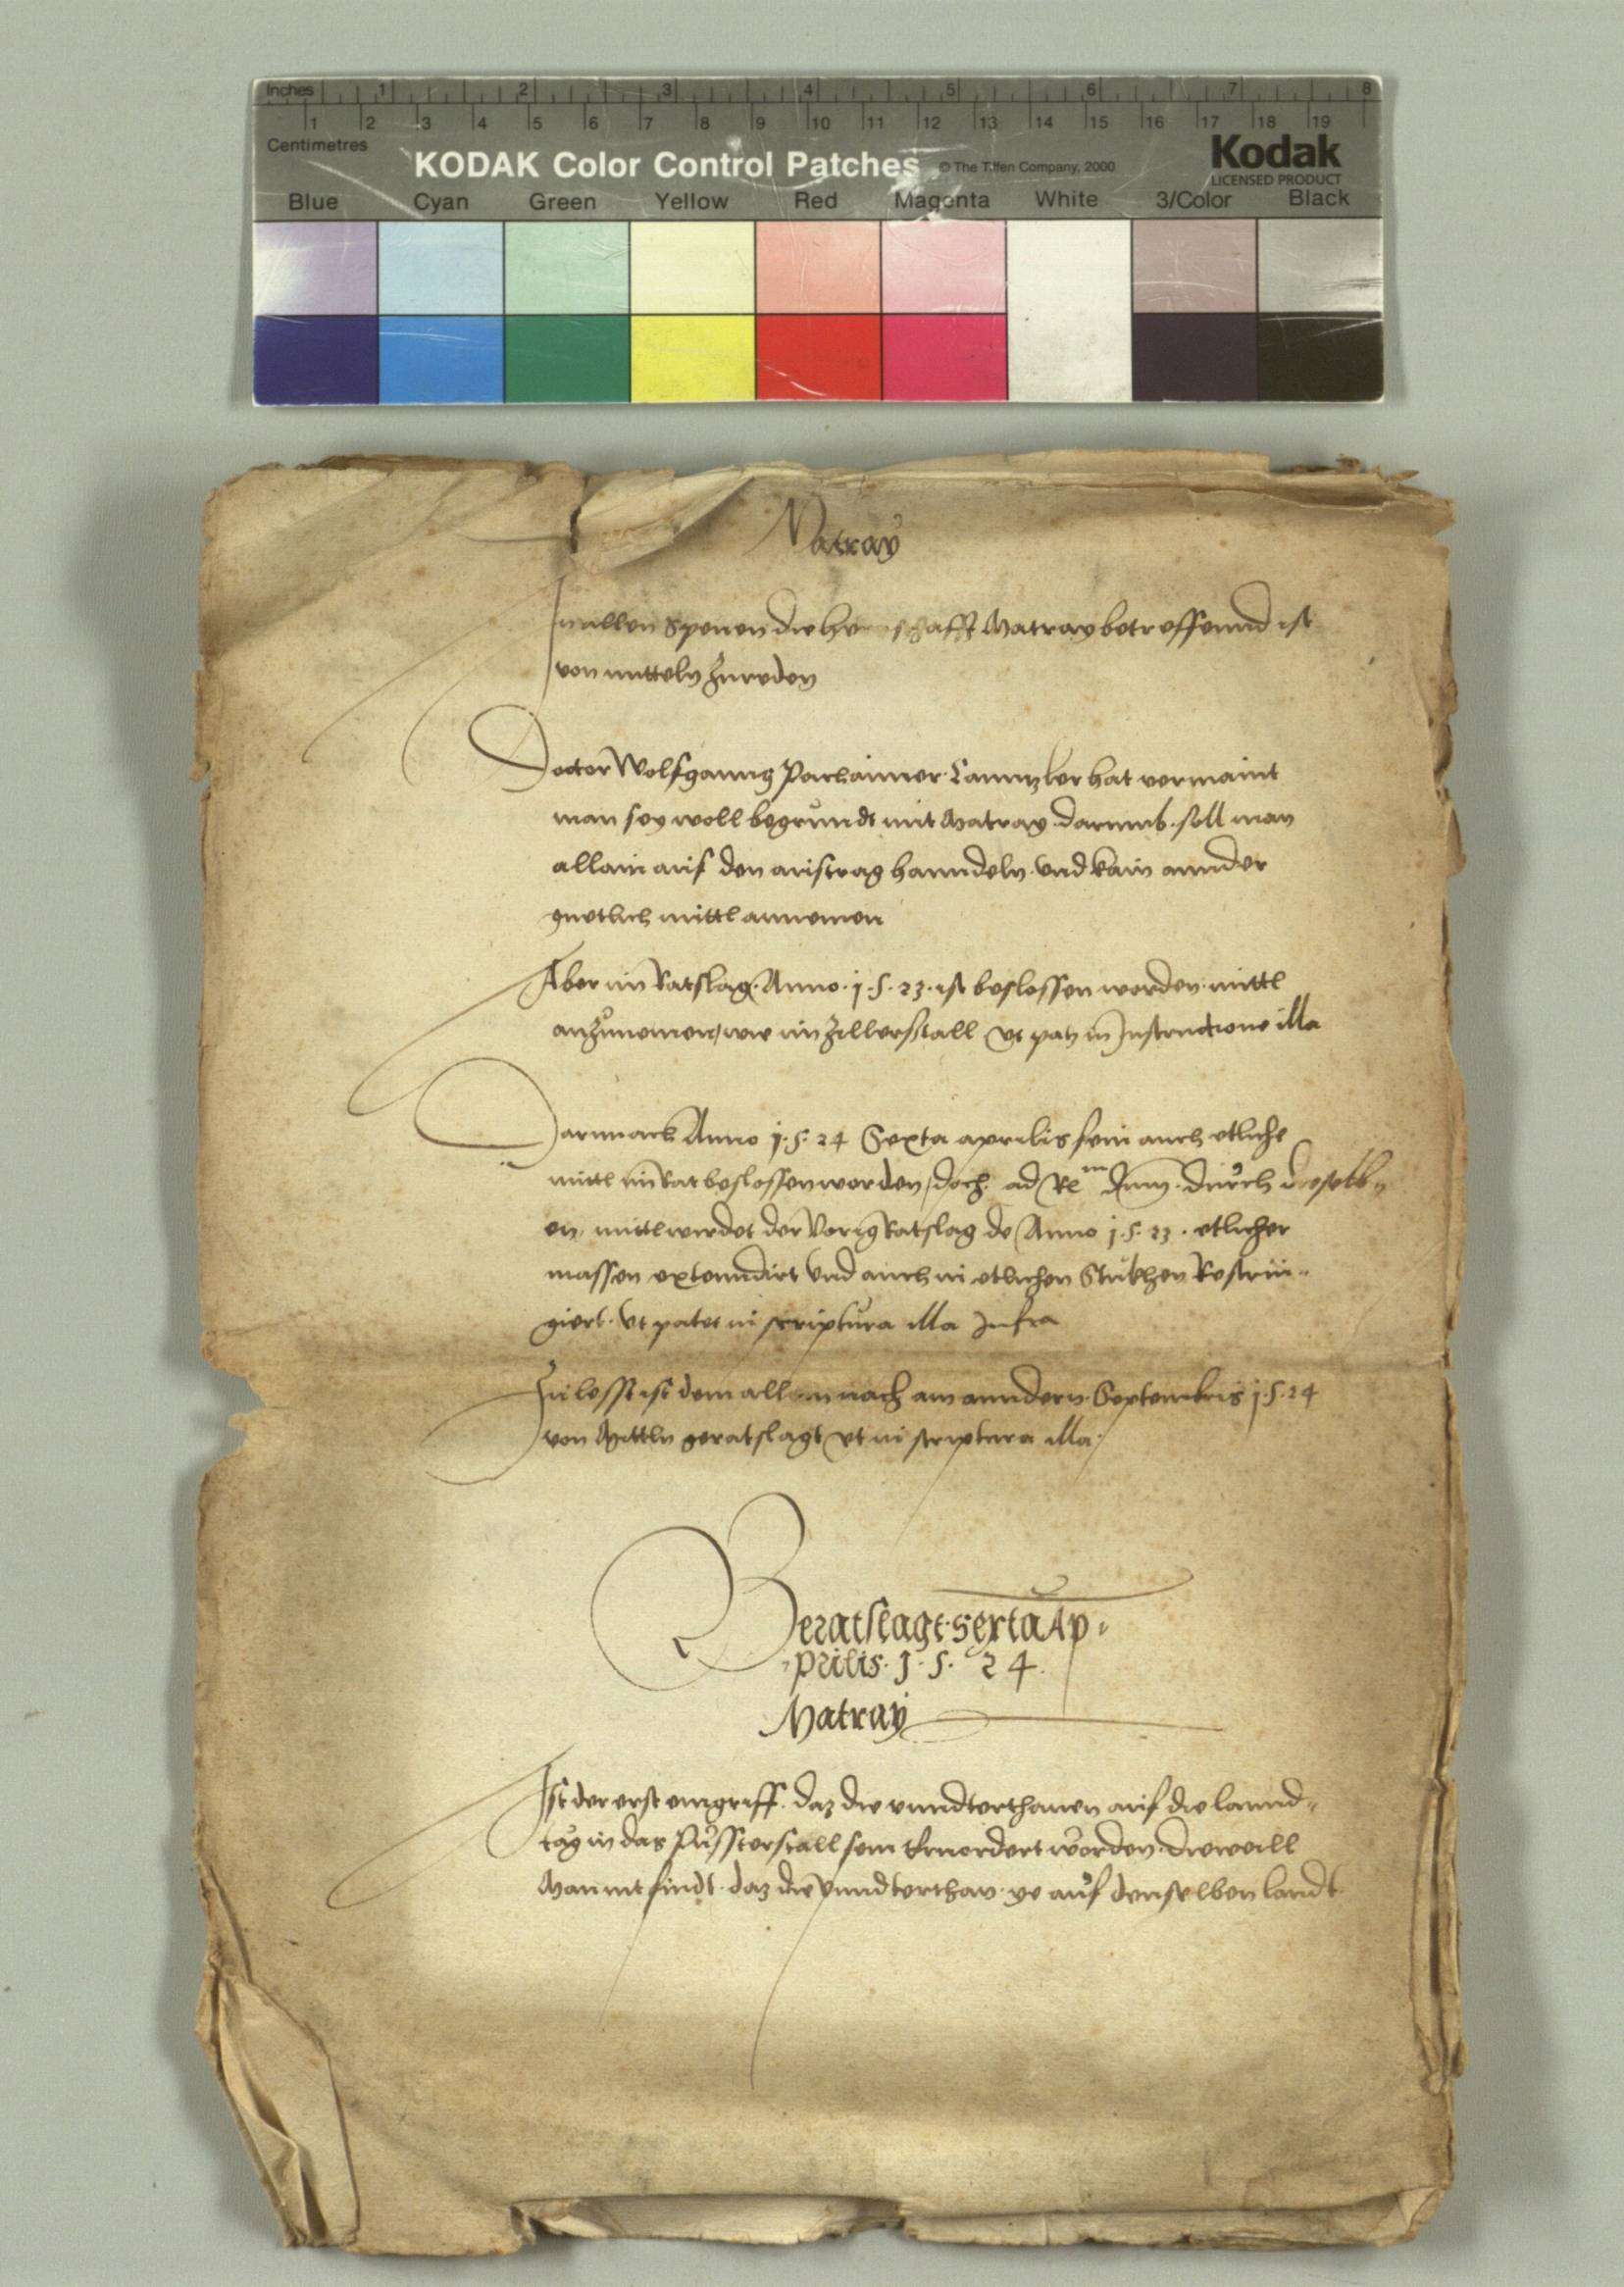 Inches 1 2 3 4 5 6 7 8
1 2 3 4 5 6 7 8 9 10 11 12 13 14 15 16 17 18 19
Centimetres
KODAK Color Control Patches © The Tiffen Company, 2000
Kodak
LICENSED PRODUCT
Blue Cyan Green Yellow Red Magenta White 3/Color Black
Matray
In allen Spenen die her schafft Matray betreffennd ist
von mitteln zureden
Doctor Wolfganng Parhaimer Canntzler hat vermaint
man sey woll begrundt mit Matray. darumb. soll man
allain auf den austrag hanndeln. vnd kain annder
guetlich mittl annemen
Aber im Ratslag. Anno. j. 5. 23. ist beslossen worden. mittl
anzunemen, wie im Zillerstall vt patz in Instructione illa
Darnnach Anno j. 5. 24 Sexta aprilis sein auch etliche
mittl im Rat beslossen worden, doch. ad Re^m dnm. durch dieselb
en, mittl wirdet der Vorig Ratslag de Anno j. 5. 23. etlicher
massen extenndirt vnd auch in etlichen Stukhen Restrin„
giert. vt patet in scriptura illa Infra
Zu lesst ist dem all nach am anndern. Septembris j. 5. 24
von Mittln geratslagt vt in scriptura illa.
Beratslagt. sexta Ap„
„prilis. J. 5. 24.
Matray
Ist der erst eingriff. daz die vnndterthanen auf die lannd„
täg in das Pussterstall sein ervordert worden. dieweill
Man nit findt. daz die vnndterthan. ye auf denselben landt